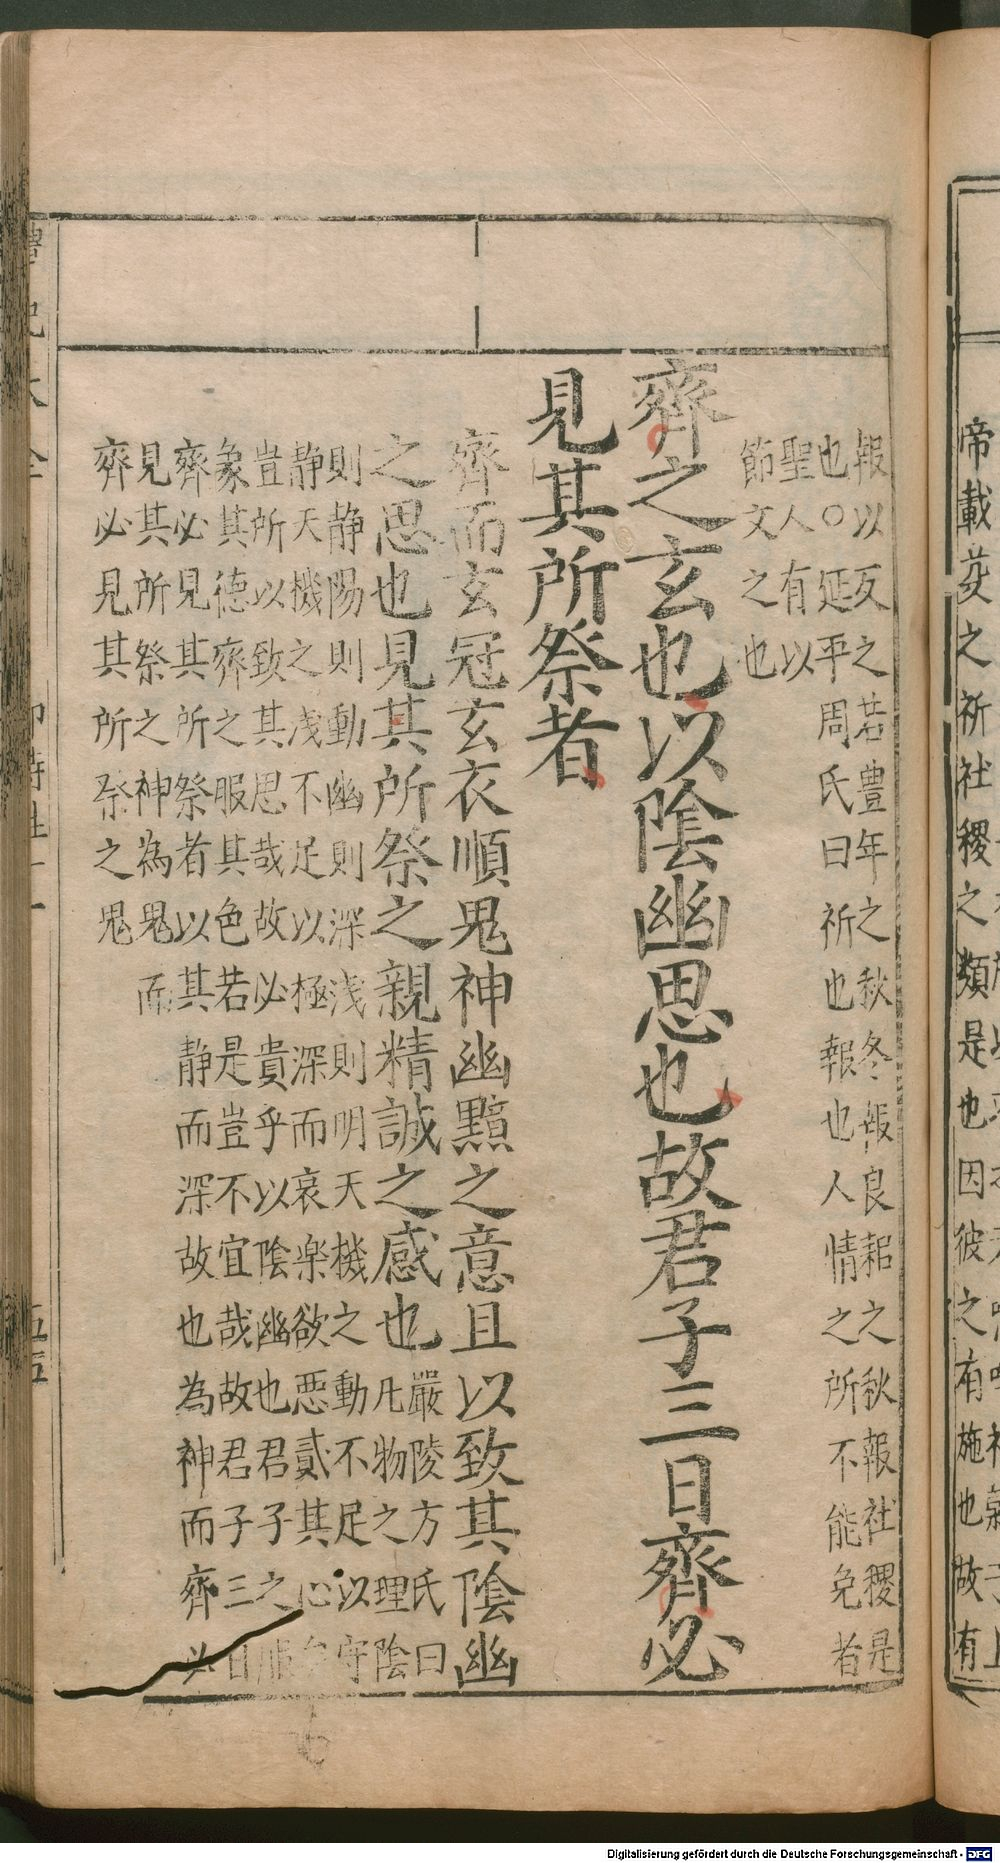 報以反之若豊年之秋冬報良耜之秋報社稷是
也○延平周氏曰祈也報也人情之所不能免者
聖人有以
節文之也
齊之玄也以陰幽思也故君子三日齊必
見其所祭者
齊而玄冠玄衣順鬼神幽黯之意且以致其陰幽
之思也見其所祭之親精誠之感也
嚴陵方氏曰
凡物之理陰
則静陽則動幽則深浅則明天機之動不足以守
静天機之浅不足以極深而哀楽欲悪貳其心
豈所以致其思哉故必貴乎以陰幽也君子之服
象其德齊之服其色若是豈不宜哉故君子三日
齊必見其所祭者以其静而深故也為神而齊以
見其所祭之神為鬼而
齊必見其所祭之鬼
帝載芟之祈社稷之類是也因彼之有施也故有
Digitalisierung gefördert durch die Deutsche Forschungsgemeinschaft - DFG